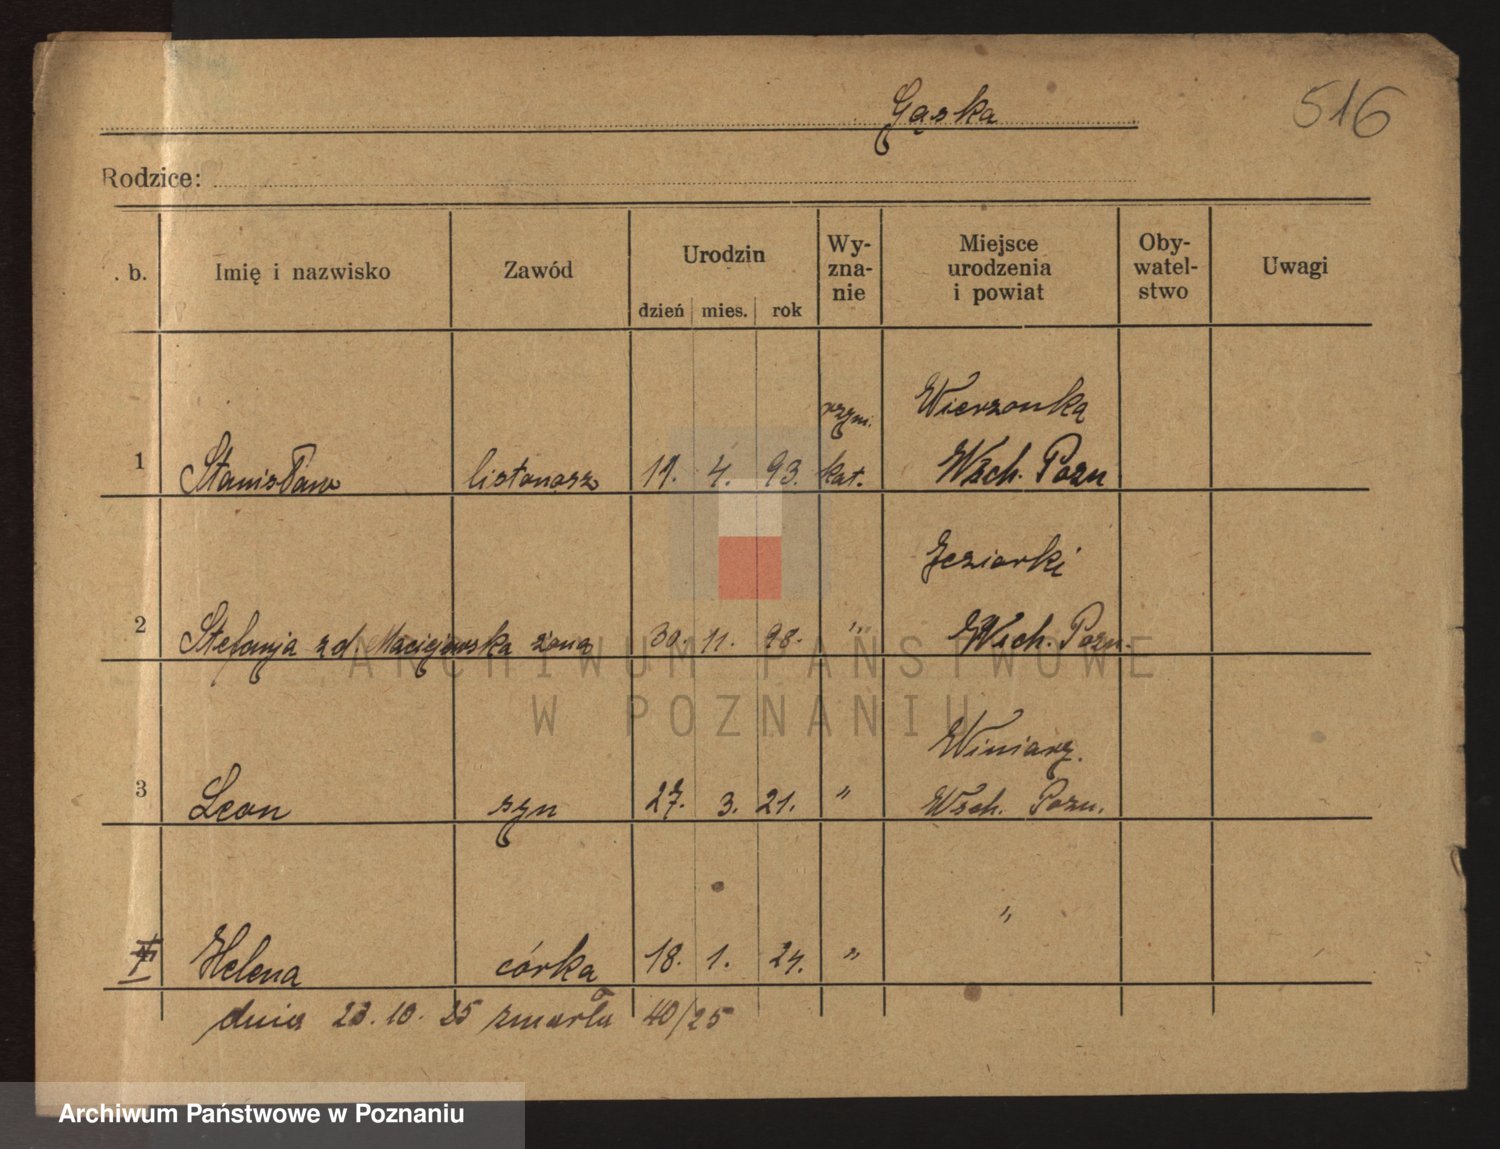 Gąska
516
Rodzice:
. b. Imię i nazwisko Zawód Urodzin dzień mies. rok Wy-zna-nie Miejsce urodzenia i powiat Oby-watel-stwo Uwagi
Wierzonka
rzym.
1 Stanisław listonosz 11. 4. 93. kat. Wsch. Pozn
Jeziorki
2 Stefanja zd. Maciejewska żona 30. 11. 98. " Wsch. Pozn.
Winiary.
3 Leon syn 27. 3. 21. " Wsch. Pozn.
"
Helena córka 18. 1. 24. "
dnia 23. 10. 25 zmarła 40/25
ARCHIWUM PAŃSTWOWE
W POZNANIU
Archiwum Państwowe w Poznaniu